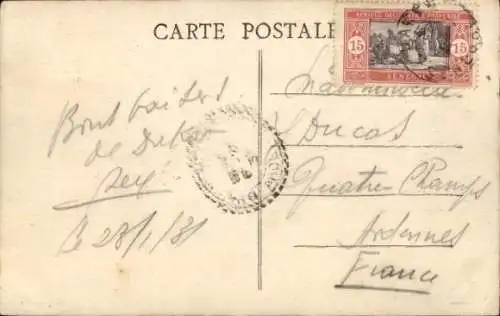 CARTE POSTALE
AFRIQUE OCCIDENTALE FRANCAISE
15 15
SENEGAL
Bons baisers
de Dakar
le 28/1/31
Mademoiselle
Ducas
Quatre Champs
Ardennes
France